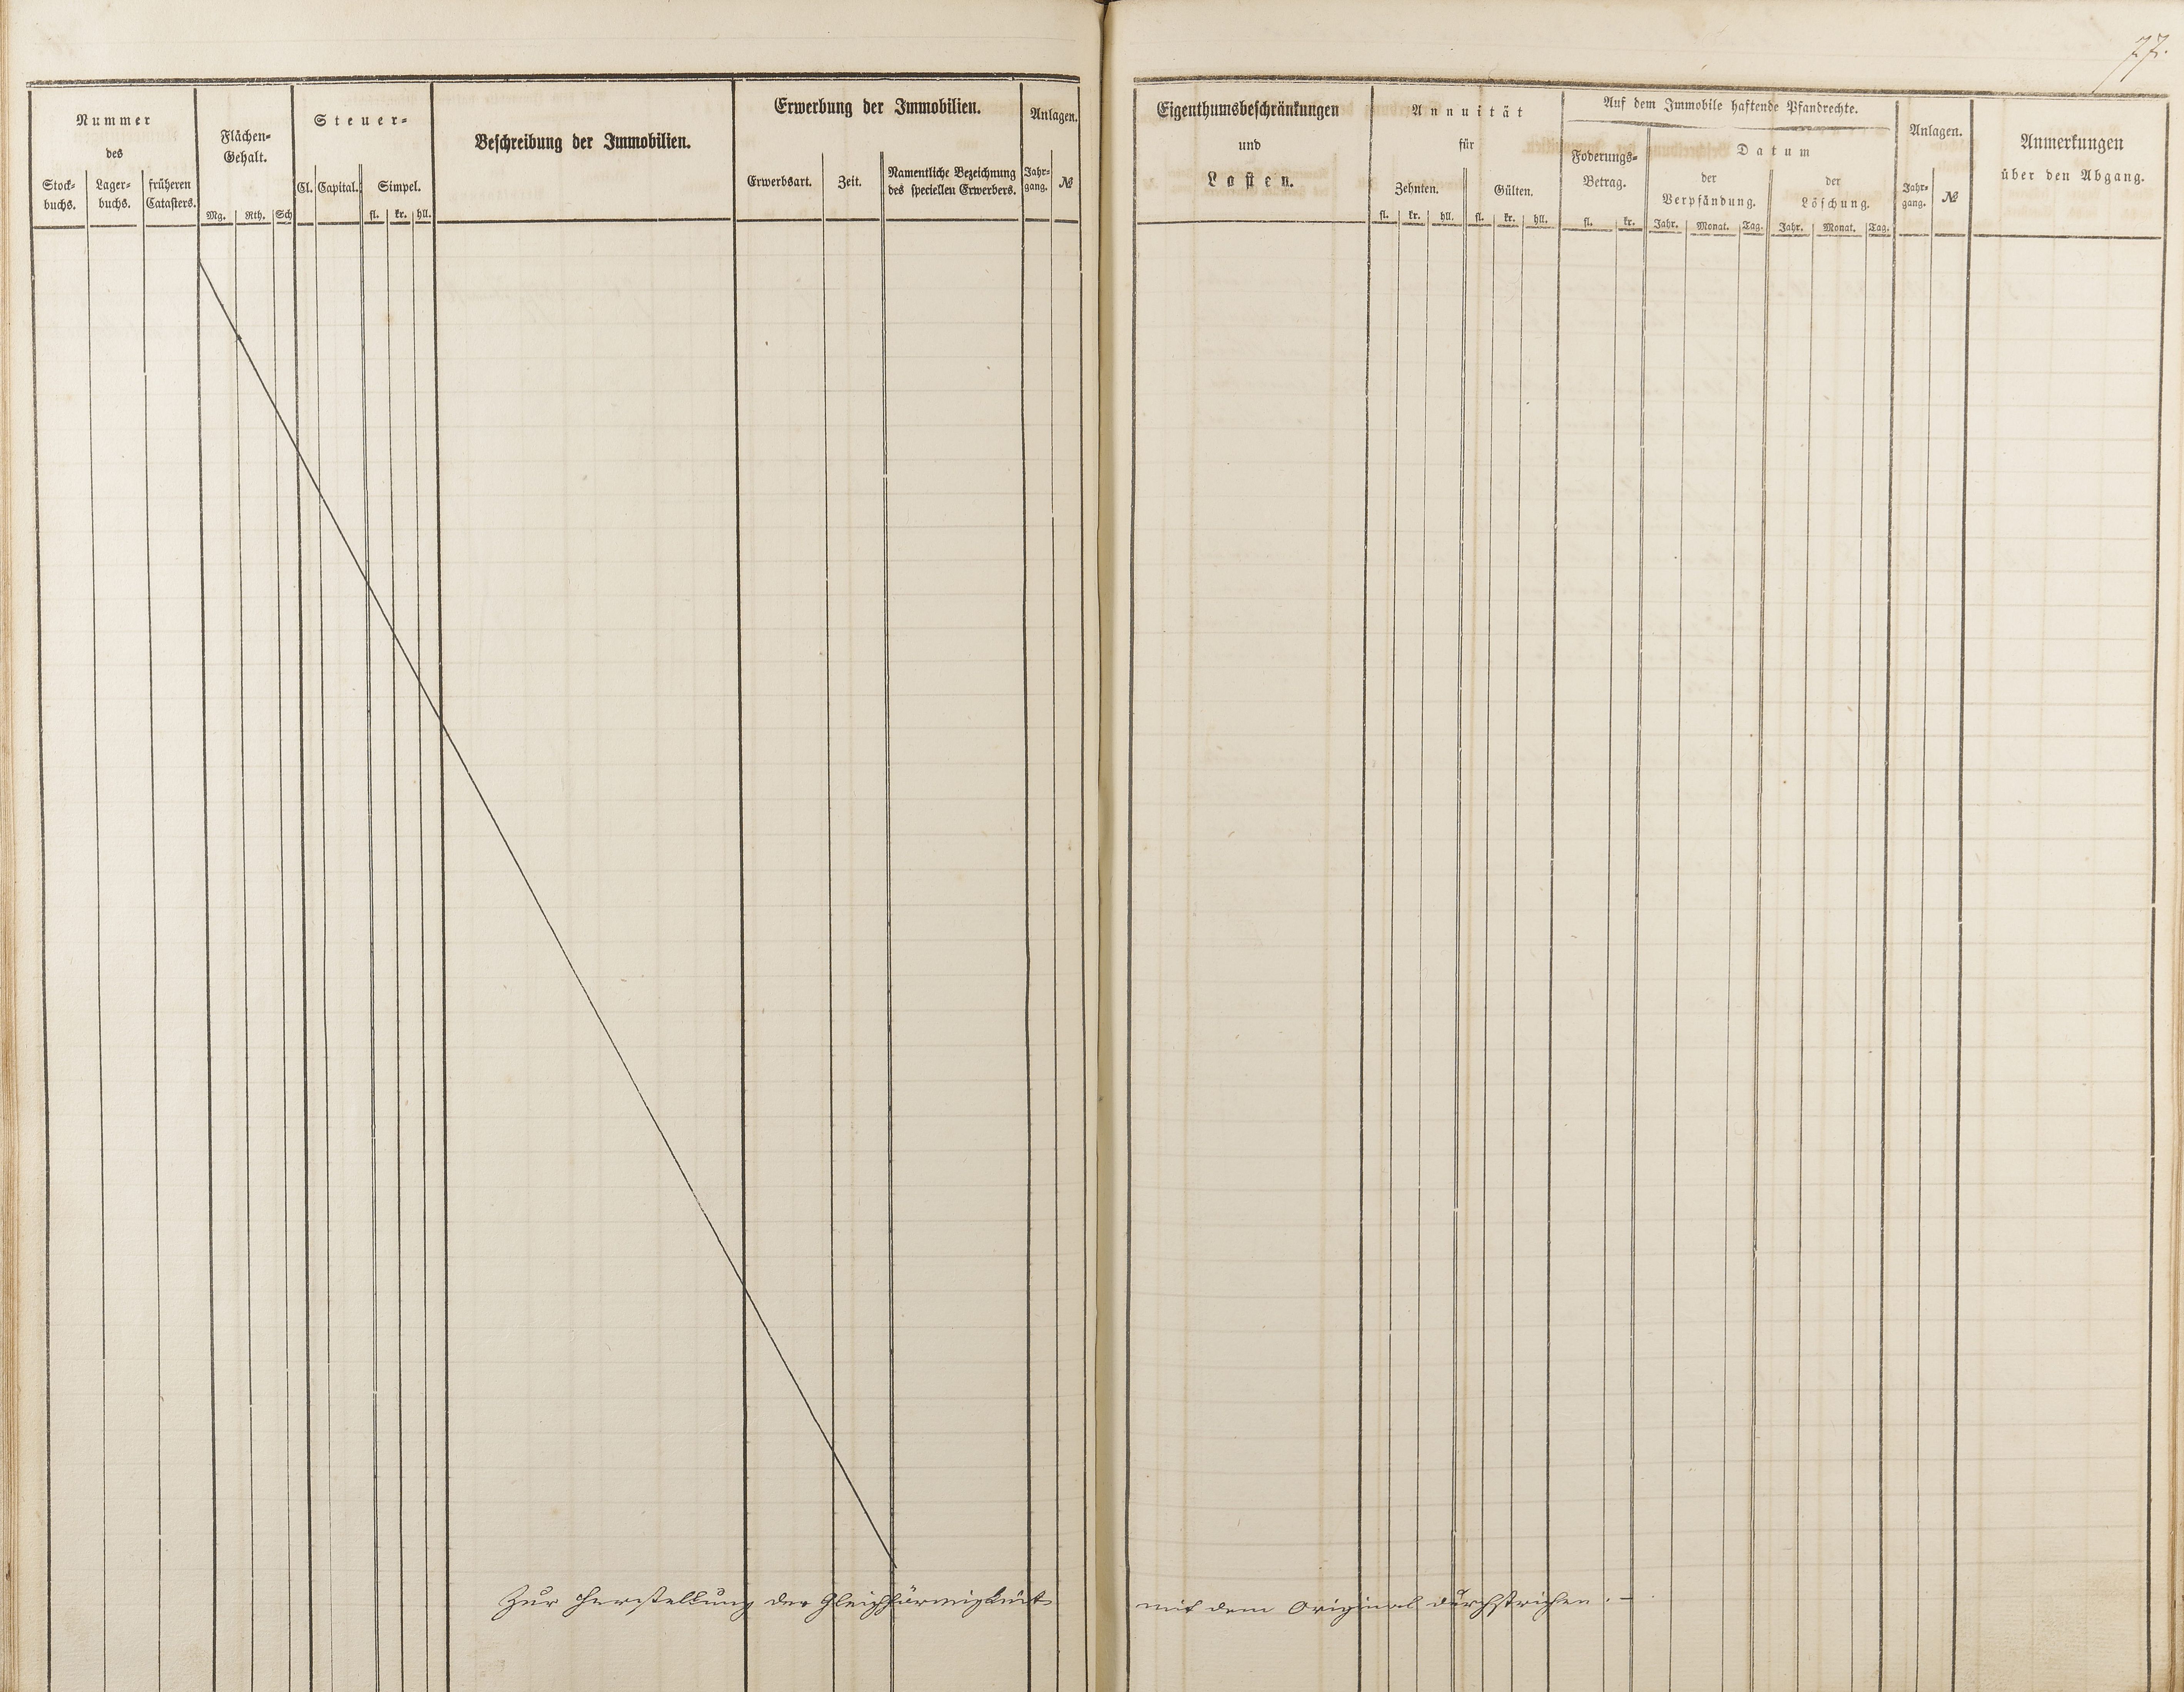 77.
Nummer
des
Stock-
buchs.
Lager-
buchs.
früheren
Catasters.
Flächen-
Gehalt.
Mg.
Rth.
Sch
Steuer-
Cl.
Capital.
Simpel.
fl.
kr.
hll.
Beschreibung der Immobilien.
Erwerbung der Immobilien.
Erwerbsart.
Zeit.
Namentliche Bezeichnung
des speciellen Erwerbers.
Anlagen.
Jahr-
gang.
№
Eigenthumsbeschränkungen
und
Lasten.
Annuität
für
Zehnten.
fl.
kr.
hll.
Gülten.
fl.
kr.
hll.
Auf dem Immobile haftende Pfandrechte.
Foderungs-
Betrag.
fl.
kr.
Datum
der
Verpfändung.
Jahr.
Monat.
Tag.
der
Löschung.
Jahr.
Monat.
Tag.
Anlagen.
Jahr-
gang.
№
Anmerkungen
über den Abgang.
Zur Herstellung der Gleichförmigkeit mit dem Original durchstrichen. –